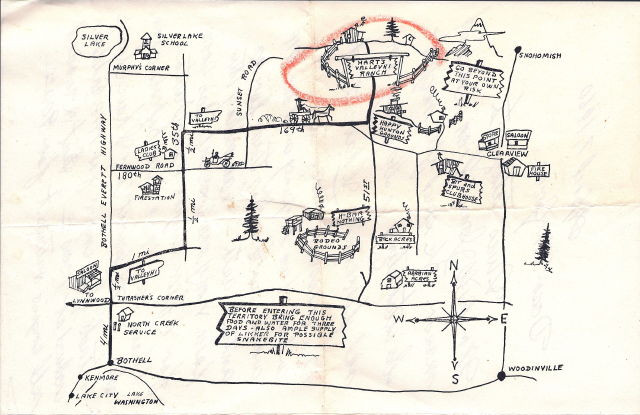 SILVER
LAKE
SILVER LAKE
SCHOOL
MURPHY'S CORNER
SUNSET ROAD
HART'S
VALLEYHI
RANCH
GO BEYOND
THIS POINT
AT YOUR OWN
RISK
SNOHOMISH
TO
VALLEYHI
169th
HAPPY
HUNTON
GROUNDS
STORE
SALOON
CLEARVIEW
FIRE
HOUSE
LADIES
CLUB
½ mi
35th
FERNWOOD ROAD
180th
FIRESTATION
BOTHELL EVERETT HIGHWAY
½ mi
51st
BIT AND
SPURS
CLUBHOUSE
H-BAR
NOTHING
RODEO
GROUNDS
BACK ACRES
1 mi
SALOON
TO
LYNNWOOD
½ mi
TO
VALLEYHI
ARABIAN
ACRES
THRASHER'S CORNER
NORTH CREEK
SERVICE
4 mi
BEFORE ENTERING THIS
TERRITORY BRING ENOUGH
FOOD AND WATER FOR THREE
DAYS - ALSO AMPLE SUPPLY
OF LICKER FOR POSSIBLE
SNAKEBITE
N
W
E
S
BOTHELL
KENMORE
LAKE CITY
LAKE
WASHINGTON
WOODINVILLE